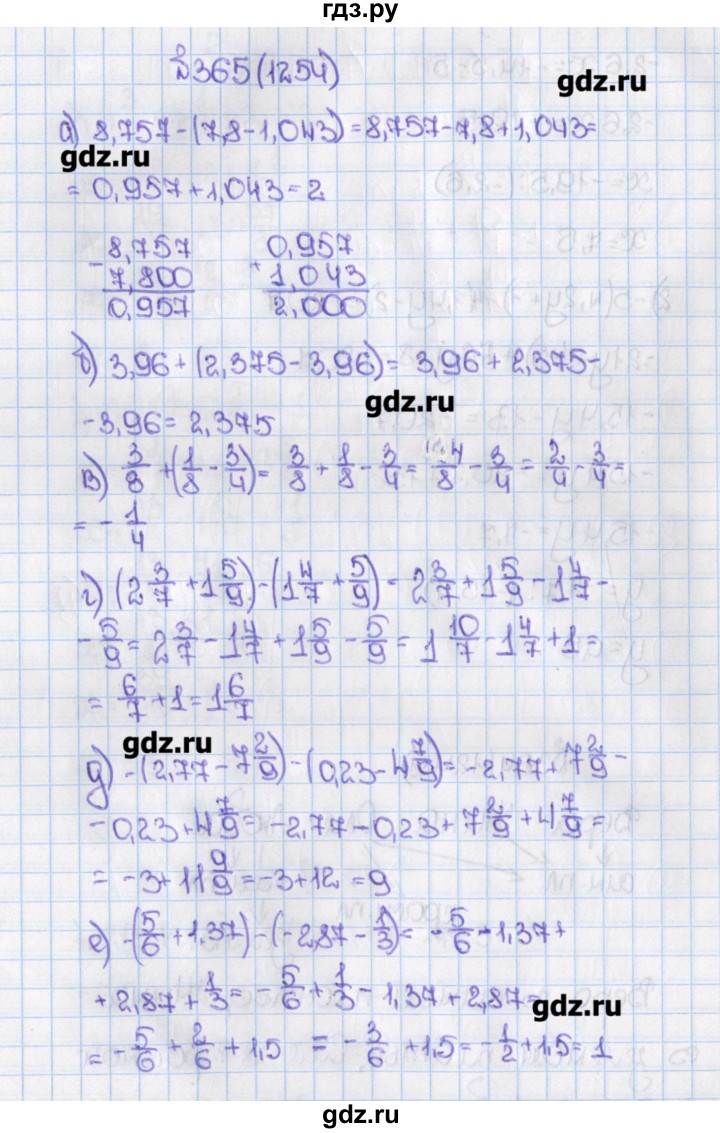 гдз.ру
№365(1254)
gdz.ru
а) 8,757-(7,8-1,043)=8,757-7,8+1,043=
gdz.ru
= 0,957+1,043=2
- 8,757 + 0,957
7,800 1,043
0,957 2,000
б) 3,96+(2,375-3,96)= 3,96+2,375-
gdz.ru
-3,96= 2,375
в) 3/8 +(1/8 - 3/4)= 3/8 + 1/8 - 3/4 = 4/8 - 3/4 = 2/4 - 3/4 =
= - 1/4
г) (2 3/7 + 1 5/9)-(1 4/7 + 5/9)= 2 3/7 + 1 5/9 - 1 4/7 -
- 5/9 = 2 3/7 - 1 4/7 + 1 5/9 - 5/9 = 1 10/7 - 1 4/7 + 1 =
= 6/7 + 1 = 1 6/7
gdz.ru
д) -(2,77 - 7 2/9)-(0,23 - 4 7/9)= -2,77+ 7 2/9 -
- 0,23 + 4 7/9 = -2,77 - 0,23 + 7 2/9 + 4 7/9 =
= -3+11 9/9 = -3+12 = 9
е) -(5/6 + 1,37)-(-2,87 - 1/3)= - 5/6 - 1,37+
+ 2,87 + 1/3 = - 5/6 + 1/3 - 1,37 + 2,87 =
gdz.ru
= - 5/6 + 2/6 + 1,5 = - 3/6 + 1,5 = - 1/2 + 1,5 = 1
gdz.ru